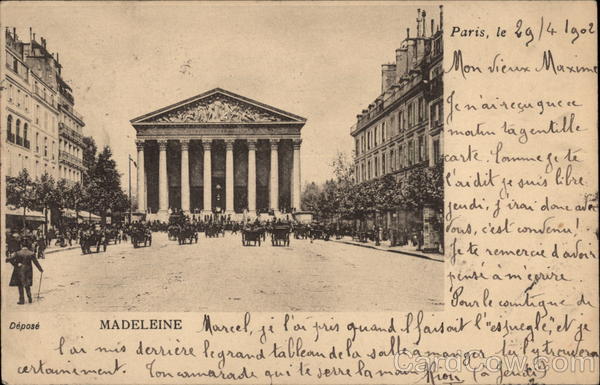 Paris, le 29/4 1902
Mon vieux Maxime
Je n'ai reçu que ce
matin ta gentille
carte. Comme je te
l'ai dit je suis libre
jeudi, j'irai donc avec
vous, c'est convenu!
Je te remercie d'avoir
pensé à m'écrire
Pour le comique de
Déposé
MADELEINE
Marcel, je l'ai pris quand il faisait l'"espiègle", et je
l'ai mis derrière le grand tableau de la salle à manger tu l'y trouveras
certainement. Ton camarade qui te serre la main
(à jeudi)
CardCow.com